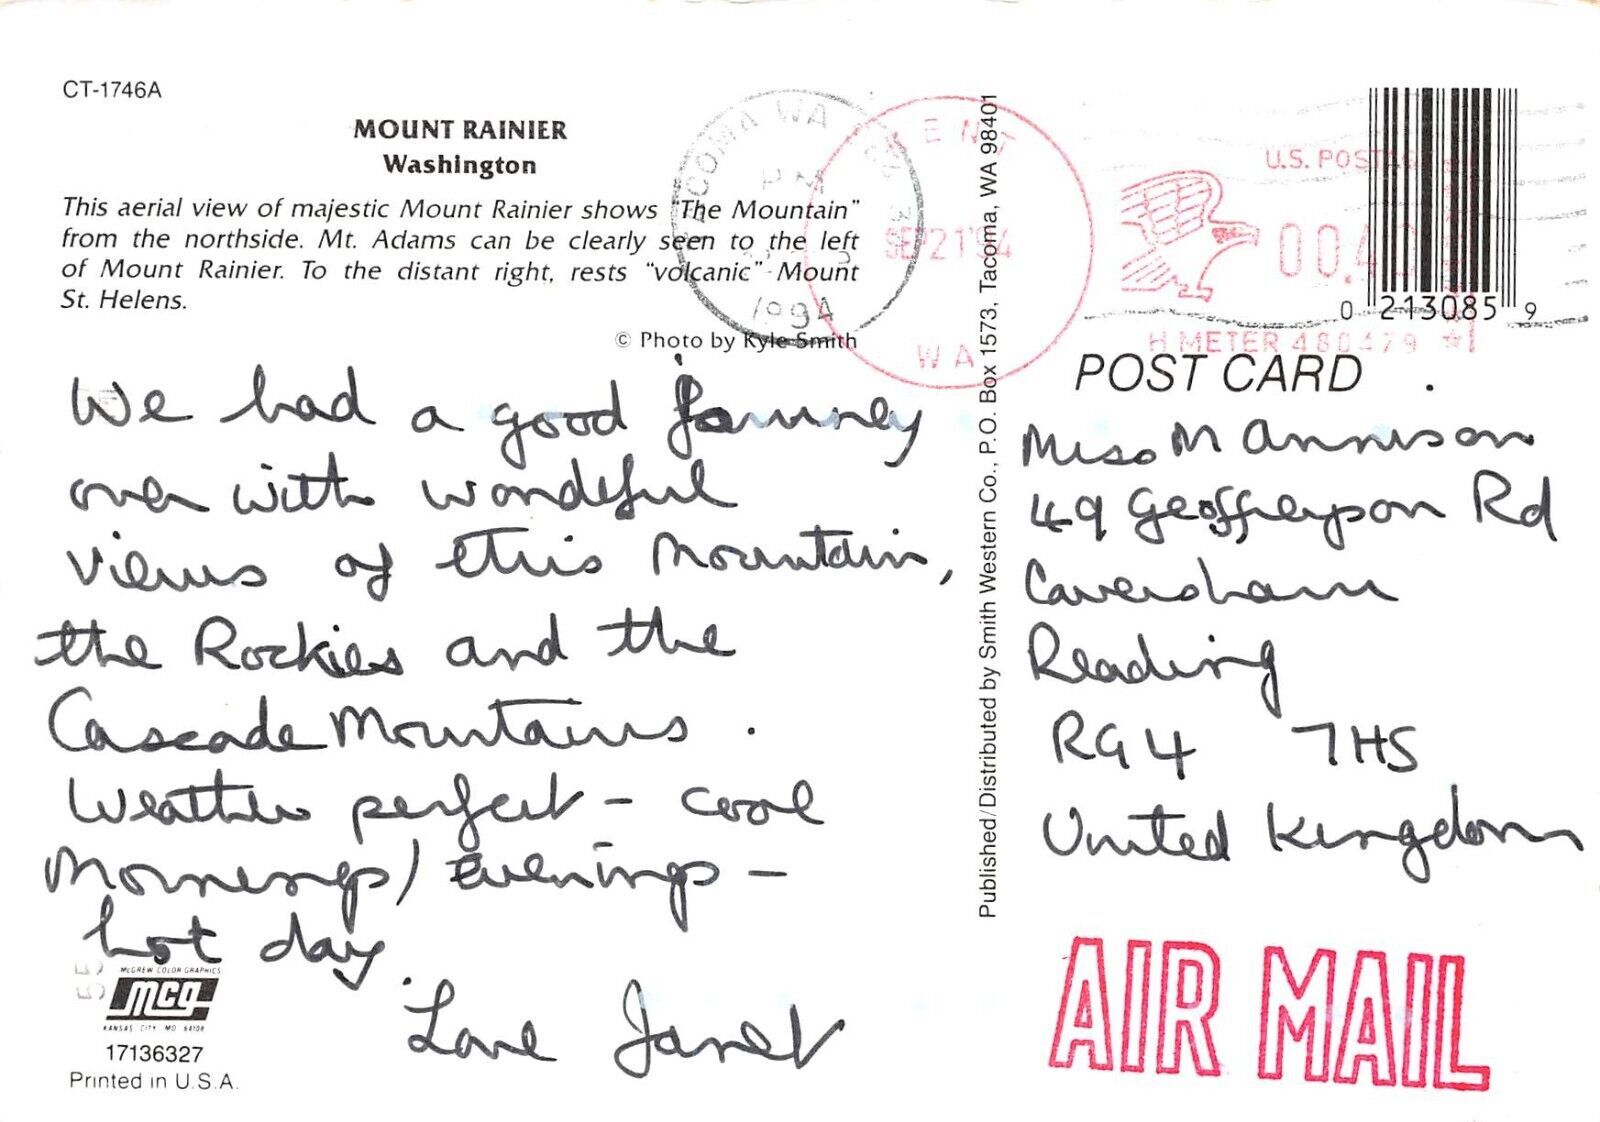 CT-1746A
MOUNT RAINIER
Washington
This aerial view of majestic Mount Rainier shows "The Mountain"
from the northside. Mt. Adams can be clearly seen to the left
of Mount Rainier. To the distant right, rests "volcanic" Mount
St. Helens.
© Photo by Kyle Smith
We had a good journey
over with wonderful
views of this mountain,
the Rockies and the
Cascade Mountains.
Weather perfect - cool
Mornings/evenings -
hot day.
Love Janet
McGREW COLOR GRAPHICS
MCG
KANSAS CITY MO 64108
17136327
Printed in U.S.A.
Published/Distributed by Smith Western Co., P.O. Box 1573, Tacoma, WA 98401
TACOMA WA
PM
1994
KENT
SEP21'94
WA
U.S. POSTAGE
H METER 480479
0 213085 9
POST CARD
Miss M Annison
49 Geoffreyson Rd
Caversham
Reading
RG4 7HS
United Kingdom
AIR MAIL